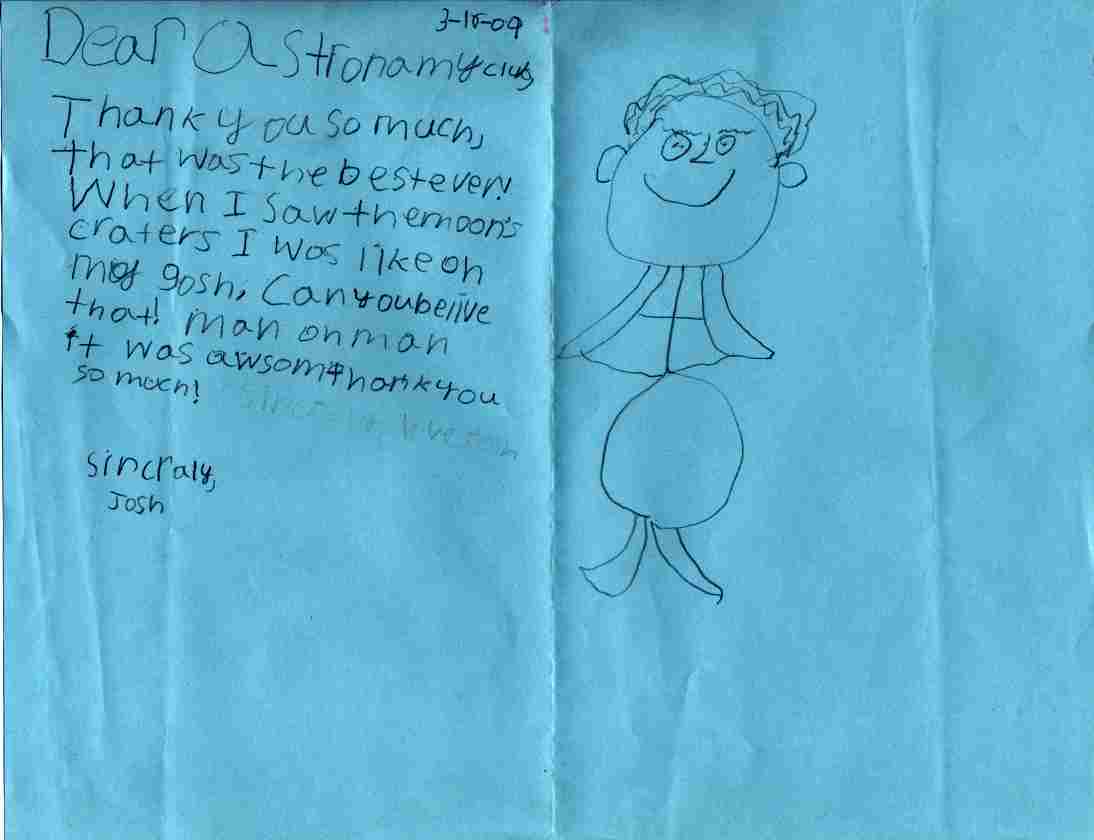 3-18-09
Dear Astronamy club,
Thank you so much,
that was the best ever!
When I saw the moon's
craters I was like oh
my gosh, Can you belive
that! man oh man
it was awsom thank you
so much!
sincraly,
Josh